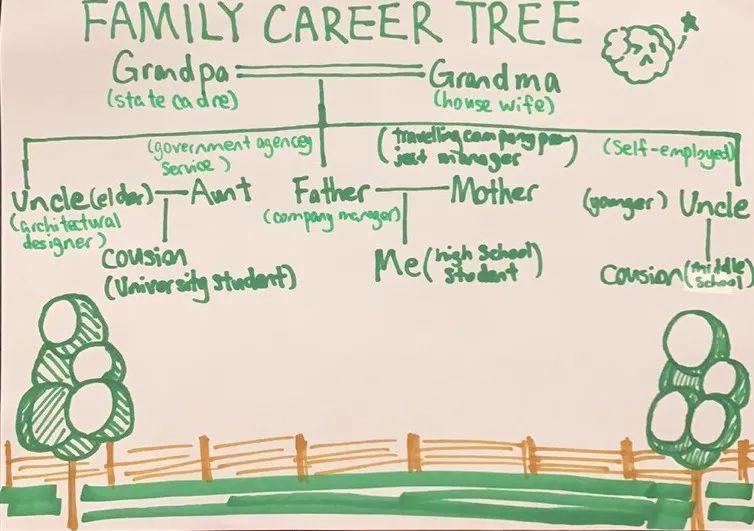 FAMILY CAREER TREE
Grandpa Grandma
(state cadre) (house wife)
(government agencey (travelling company pro
service) ject manager (self-employed)
Uncle(elder) Aunt Father Mother (younger) Uncle
(architectural (company manager)
designer)
cousion Me(high school Cousion(middle
(University student) student) school)